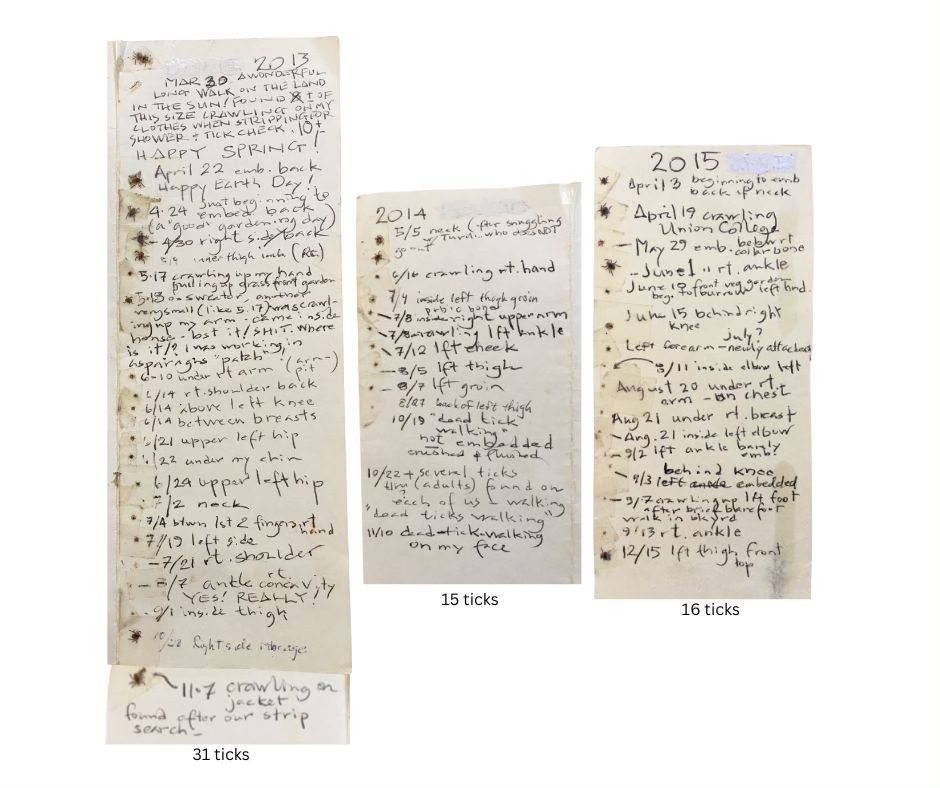 2013
MAR 30 A WONDERFUL
LONG WALK ON THE LAND
IN THE SUN! FOUND 1 OF
THIS SIZE CRAWLING ON MY
CLOTHES WHEN STRIPPING FOR
SHOWER + TICK CHECK. 10+
HAPPY SPRING!
April 22 emb. back
Happy Earth Day!
4.24 just beginning to
embed back
(a "good" gardening day)
4/30 right side/back
5/9 inner thigh
5.17 crawling up my hand
pulling up grass front garden
5.18 on sweater, another
very small (like 5.17) was crawl-
ing up my arm - came inside
house - lost it/SHIT. Where
is it/? I was working in
asparaghs "patch"
6-10 under rt arm (arm-
pit)
6/14 rt. shoulder back
6/14 above left knee
6/14 between breasts
6/21 upper left hip
6/22 under my chin
6/24 upper left hip
7/2 neck
7/4 btwn 1st 2 fingers rt
hand
7/19 left side
-7/21 rt. shoulder
- 8/7 ankle concavity
rt.
YES! REALLY!
9/1 inside thigh
Right side ribcage
11.7 crawling on
jacket
found after our strip
search -
31 ticks
2014
5/5 neck (after snuggling
w/ who does NOT
go out
6/16 crawling rt. hand
7/4 inside left thigh groin
pubic bone
7/8 inside right upper arm
7/8 crawling lft ankle
7/12 lft cheek
8/5 lft thigh
8/7 lft groin
8/27 back of left thigh
10/19 "dead tick
walking"
not embedded
crushed & flushed
10/22 + several ticks
(adults) found on
each of us - walking
"dead ticks walking"
11/10 dead-tick-walking
on my face
15 ticks
2015
April 3 beginning to emb
back of neck
April 19 crawling
Union College
- May 29 emb. below rt
collarbone
- June 1 " rt. ankle
June 10 front veg garden
beg. to burrow left hnd.
June 15 behind right
knee
july?
Left forearm - newly attached
8/11 inside elbow left
August 20 under rt.
arm - on chest
Aug 21 under rt. breast
- Aug. 21 inside left elbow
- 9/2 lft ankle barely
emb.
behind knee
9/3 left ankle embedded
- 9/7 crawling up lft foot
after brief barefoot
walk in bkyrd
9/13 rt. ankle
12/15 lft thigh front
top
16 ticks